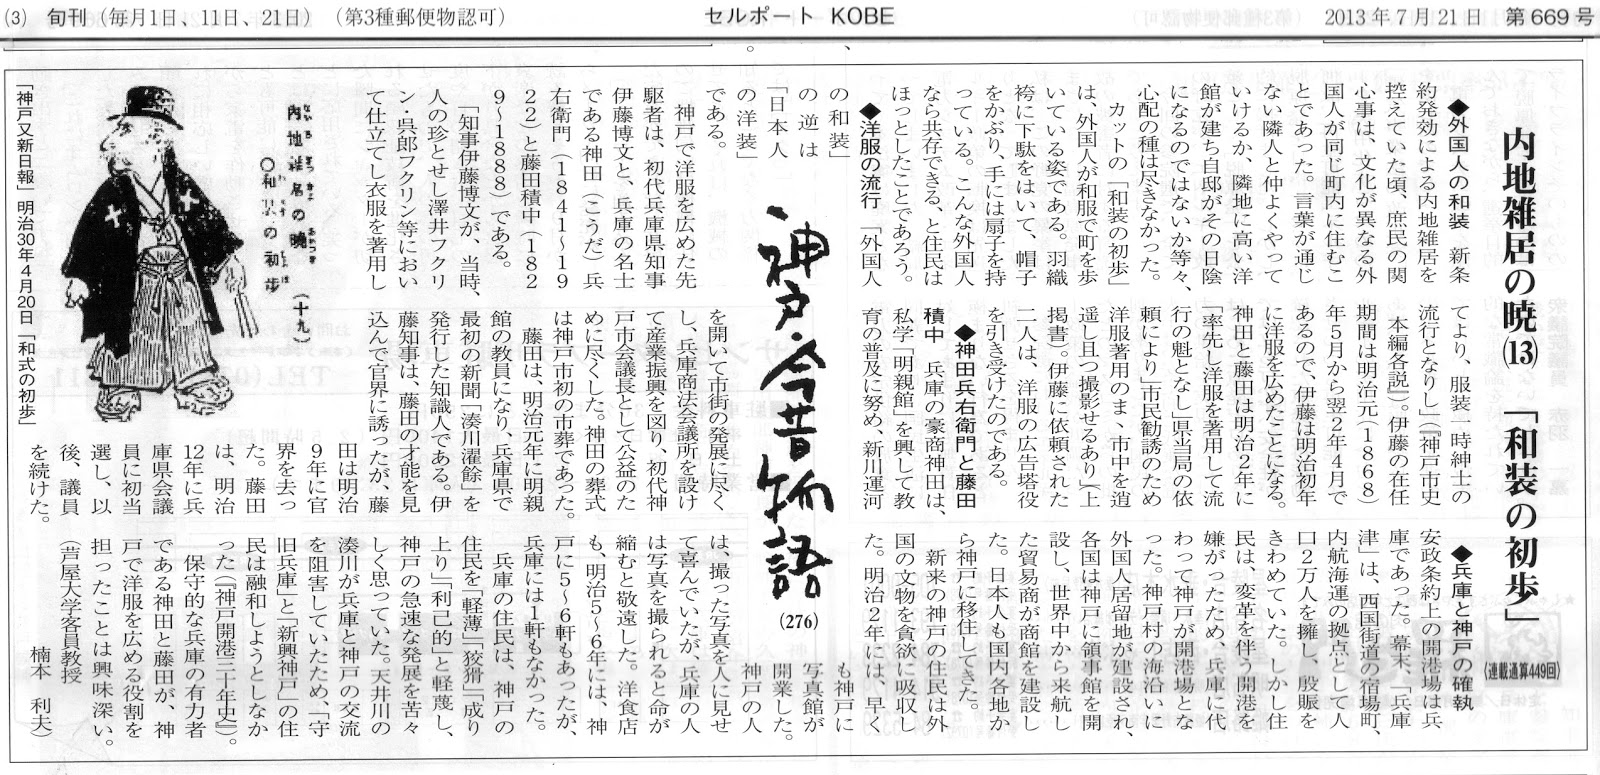 (3)　旬刊（毎月1日、11日、21日）（第3種郵便物認可）
セルポート KOBE
2013年7月21日　第669号
内地雑居の暁⒀　「和装の初歩」
（連載通算449回）
◆外国人の和装　新条
約発効による内地雑居を
控えていた頃、庶民の関
心事は、文化が異なる外
国人が同じ町内に住むこ
とであった。言葉が通じ
ない隣人と仲よくやって
いけるか、隣地に高い洋
館が建ち自邸がその日陰
になるのではないか等々、
心配の種は尽きなかった。
　カットの「和装の初歩」
は、外国人が和服で町を歩
いている姿である。羽織
袴に下駄をはいて、帽子
をかぶり、手には扇子を持
っている。こんな外国人
なら共存できる、と住民は
ほっとしたことであろう。
◆洋服の流行　「外国人
の和装」
の逆は
「日本人
の洋装」
である。
　神戸で洋服を広めた先
駆者は、初代兵庫県知事
伊藤博文と、兵庫の名士
である神田（こうだ）兵
右衛門（1841〜19
22）と藤田積中（182
9〜1888）である。
　「知事伊藤博文が、当時、
人の珍とせし澤井フクリ
ン・呉郎フクリン等におい
て仕立てし衣服を著用し
てより、服装一時紳士の
流行となりし」（『神戸市史
　本編各説』）。伊藤の在任
期間は明治元（1868）
年5月から翌2年4月で
あるので、伊藤は明治初年
に洋服を広めたことになる。
神田と藤田は明治2年に
「率先し洋服を著用して流
行の魁となし」県当局の依
頼により」市民勧誘のため
洋服著用のまゝ市中を逍
遥し且つ撮影せるあり」（上
掲書）。伊藤に依頼された
二人は、洋服の広告塔役
を引き受けたのである。
◆神田兵右衛門と藤田
積中　兵庫の豪商神田は、
私学「明親館」を興して教
育の普及に努め、新川運河
を開いて市街の発展に尽く
し、兵庫商法会議所を設け
て産業振興を図り、初代神
戸市会議長として公益のた
めに尽くした。神田の葬式
は神戸市初の市葬であった。
　藤田は、明治元年に明親
館の教員になり、兵庫県で
最初の新聞「湊川濯餘」を
発行した知識人である。伊
藤知事は、藤田の才能を見
込んで官界に誘ったが、藤
田は明治
9年に官
界を去っ
た。藤田
は、明治
12年に兵
庫県会議
員に初当
選し、以
後、議員
を続けた。
◆兵庫と神戸の確執
安政条約上の開港場は兵
庫であった。幕末、「兵庫
津」は、西国街道の宿場町、
内航海運の拠点として人
口2万人を擁し、殷賑を
きわめていた。しかし住
民は、変革を伴う開港を
嫌がったため、兵庫に代
わって神戸が開港場とな
った。神戸村の海沿いに
外国人居留地が建設され、
各国は神戸に領事館を開
設し、世界中から来航し
た貿易商が商館を建設し
た。日本人も国内各地か
ら神戸に移住してきた。
　新来の神戸の住民は外
国の文物を貪欲に吸収し
た。明治2年には、早く
も神戸に
写真館が
開業した。
神戸の人
は、撮った写真を人に見せ
て喜んでいたが、兵庫の人
は写真を撮られると命が
縮むと敬遠した。洋食店
も、明治5〜6年には、神
戸に5〜6軒もあったが、
兵庫には1軒もなかった。
　兵庫の住民は、神戸の
住民を「軽薄」「狡猾」「成り
上り」「利己的」と軽蔑し、
神戸の急速な発展を苦々
しく思っていた。天井川の
湊川が兵庫と神戸の交流
を阻害していたため、「守
旧兵庫」と「新興神戸」の住
民は融和しようとしなか
った（『神戸開港三十年史』）。
　保守的な兵庫の有力者
である神田と藤田が、神
戸で洋服を広める役割を
担ったことは興味深い。
（芦屋大学客員教授
楠本　利夫）
神戸・今昔物語
（276）
内地雑居の暁（十九）
ないちざつきょ　あかつき
〇和装の初歩
「神戸又新日報」明治30年4月20日「和式の初歩」